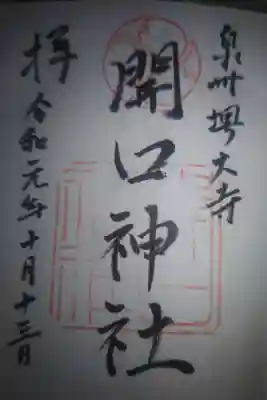 泉州堺大寺
開口神社
拝 令和元年十月十三日